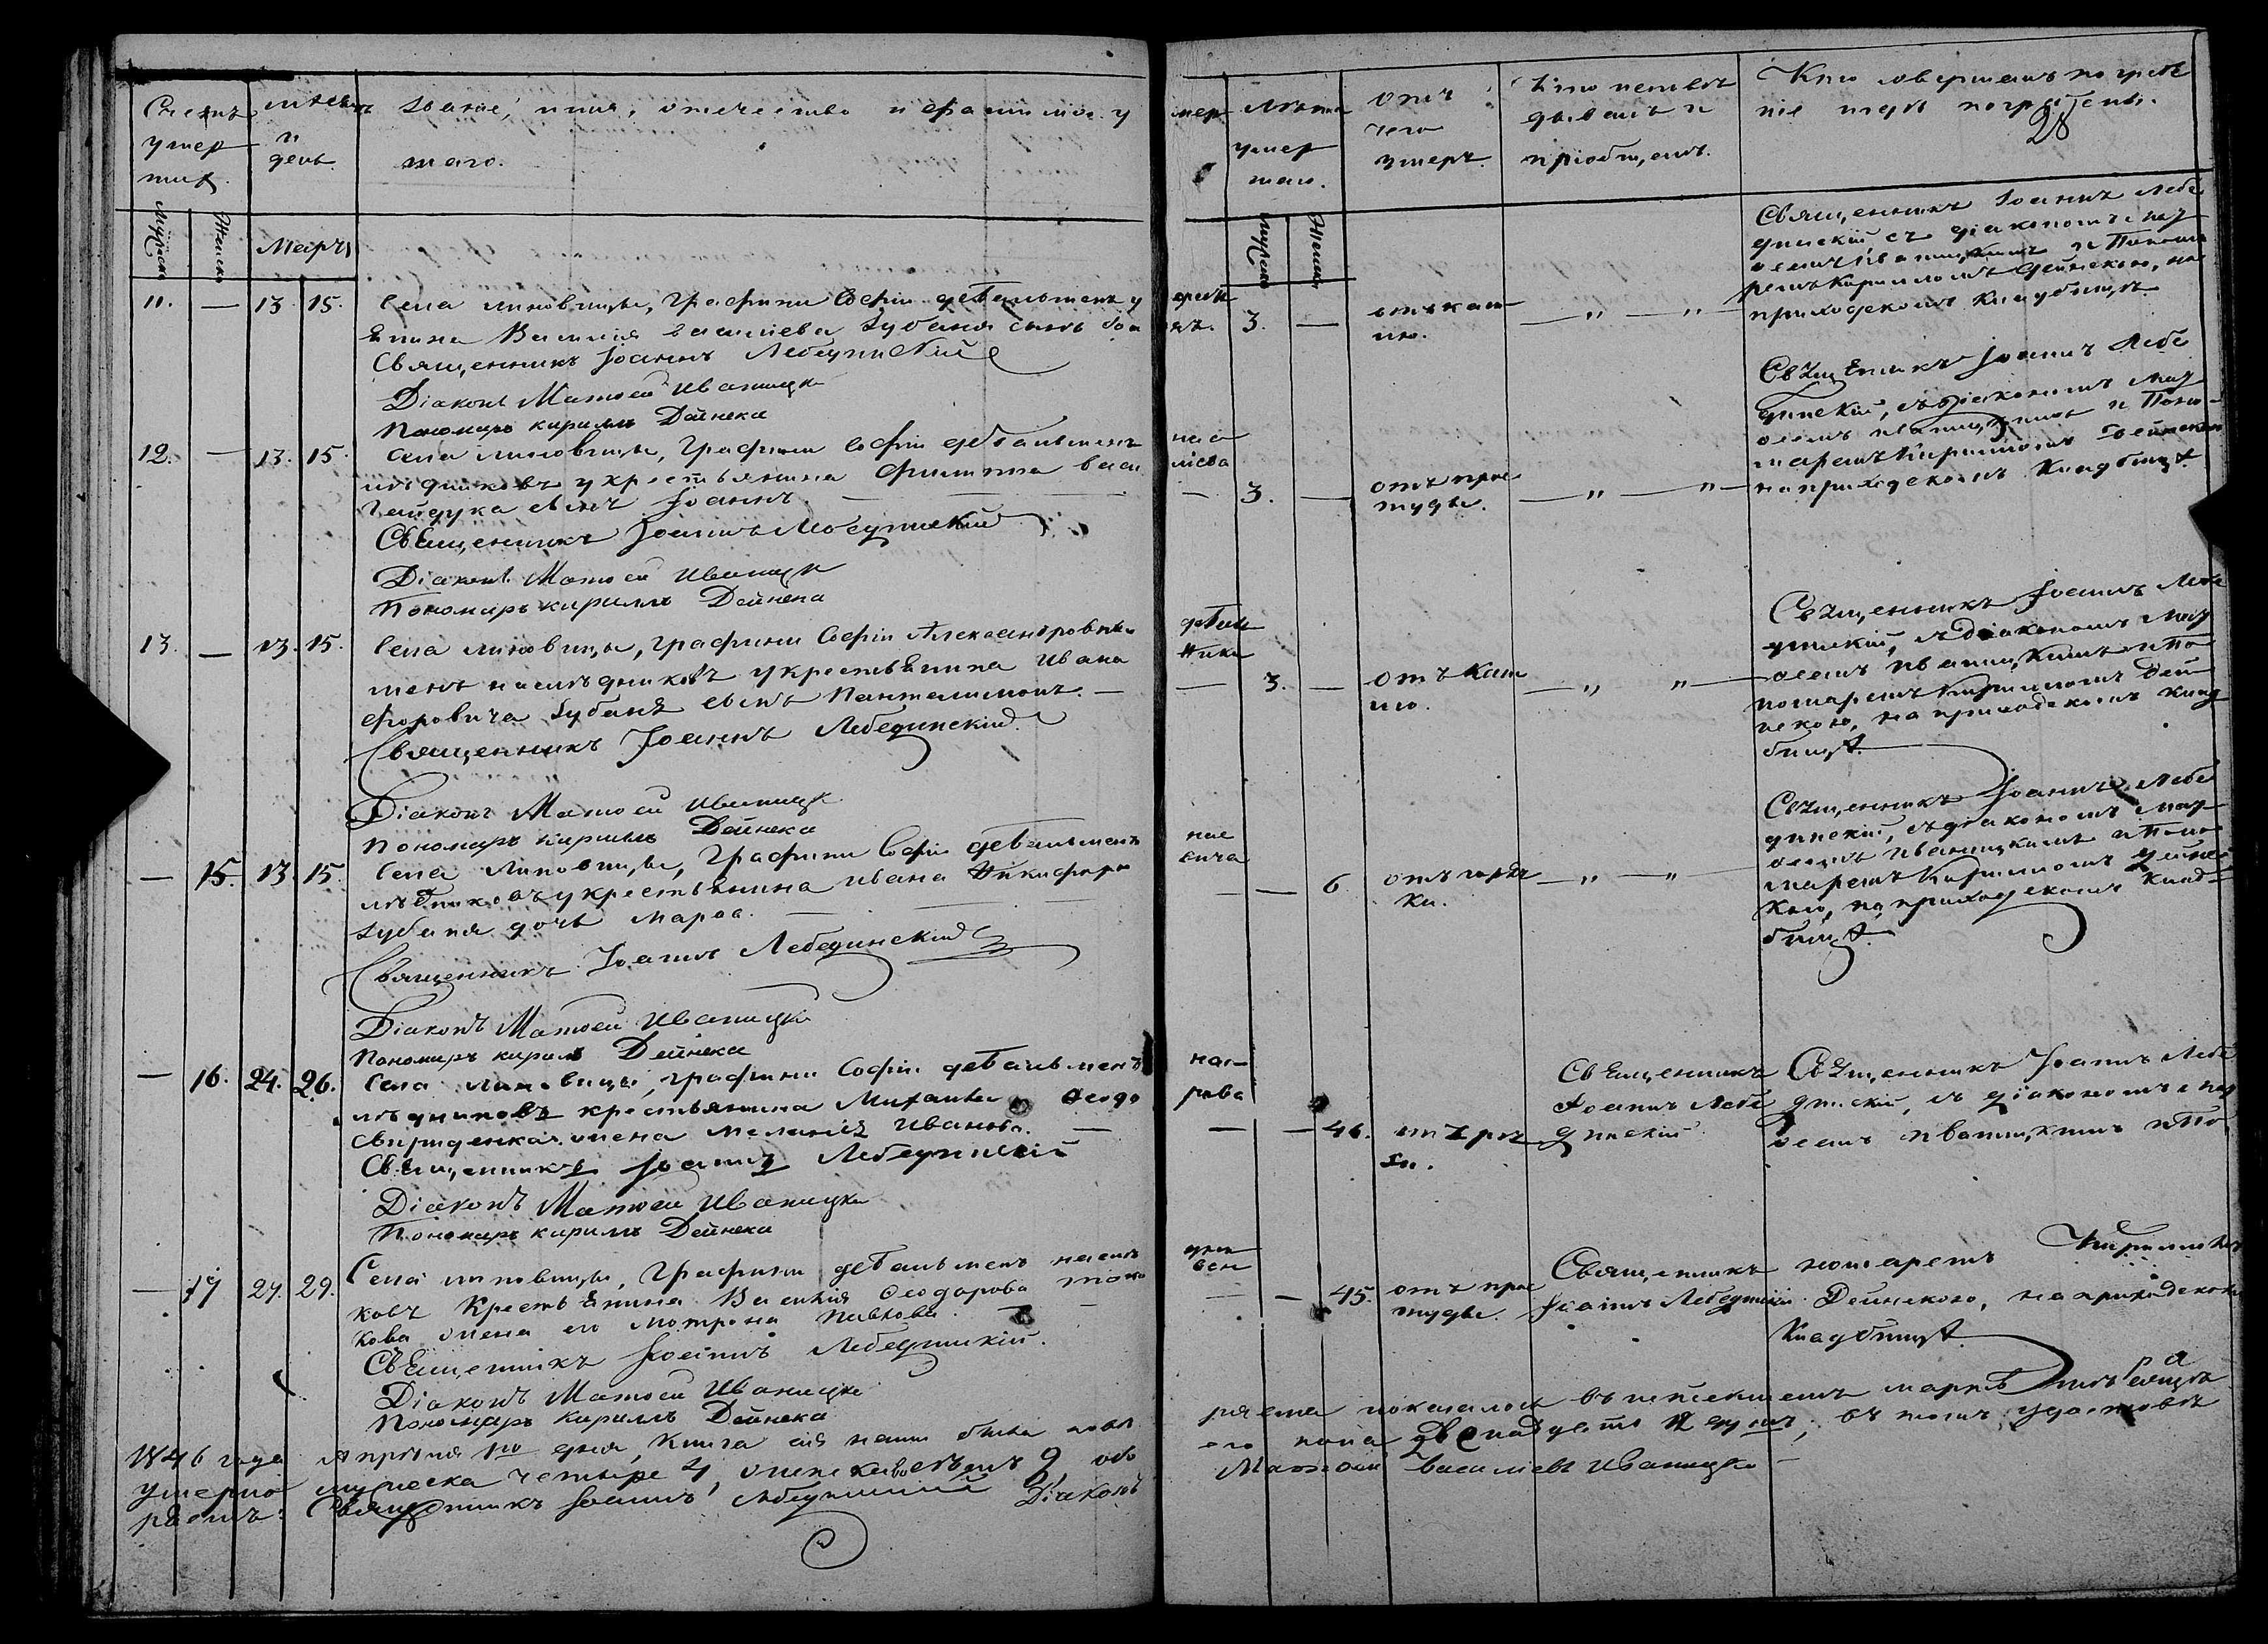 Счетъ умер шихъ.
мѣсяцъ и день.
Званіе, имя, отечество и фамилія у мер
шаго.
Лѣта умер шаго.
Отъ чего умеръ.
Кто исповѣ дывалъ и пріобщалъ.
Кто совершалъ погребе
ніе и гдѣ погребены.
28
Мужеска Женска
Мартъ
Мужеска Женска
11. — 13. 15.
Села Линовицы, Графини Софіи деБальменъ у крестья
янина Василія Васильева Зубаня сынъ
Священникъ Іоаннъ Лебединскій
Діаконъ Матѳей Иваницкій
Пономарь Кириллъ Дейнека
3. — отъ каш лю. — „ — „ —
Священникъ Іоаннъ Лебе
динскій, съ діакономъ Мат
ѳеемъ Иваницкимъ и Понома
ремъ Кирилломъ Дейнекою, на
приходскомъ кладбищѣ.
12. — 13. 15.
Села Линовицы, Графини Софіи деБальменъ нас
лѣдниковъ у крестьянина Филиппа Васи льева
Гайдука сынъ Іоаннъ. —
Священникъ Іоаннъ Лебединскій
Діаконъ Матѳей Иваницкій
Пономарь Кириллъ Дейнека
3. — отъ прос туды. — „ — „ —
Священникъ Іоаннъ Лебе
динскій, съ діакономъ Мат
ѳеемъ Иваницкимъ и Поно
маремъ Кирилломъ Дейнекою
на приходскомъ кладбищѣ.
13. — 13. 15.
Села Линовицы, Графини Софіи Александровны деБаль
менъ наслѣдниковъ у крестьянина Ивана Ники
форовича Зубаня сынъ Пантелимонъ. —
Священникъ Іоаннъ Лебединскій
Діаконъ Матѳей Иваницкій
Пономарь Кириллъ Дейнека
3. — отъ каш лю. — „ „ —
Священникъ Іоаннъ Лебе
динскій, съ Діакономъ Мат
ѳеемъ Иваницкимъ и По
номаремъ Кирилломъ Дей
некою, на приходскомъ клад
бищѣ.
— 15. 13. 15.
Села Линовицы, Графини Софіи деБальменъ нас
лѣдниковъ у крестьянина Ивана Никифоро вича
Зубаня дочь Марѳа. —
Священникъ Іоаннъ Лебединскій
Діаконъ Матѳей Иваницкій
Пономарь Кириллъ Дейнека
— 6. отъ горяч ки. — „ — „ —
Священникъ Іоаннъ Лебе
динскій, съ діакономъ Мат
ѳеемъ Иваницкимъ и Поно
маремъ Кирилломъ Дейне
кою, на приходскомъ клад
бищѣ.
— 16. 24. 26.
Села Линовицы, Графини Софіи деБальменъ нас
лѣдниковъ крестьянина Михаила Ѳеодо рова
Свириденка жена Меланія Иванова. —
Священникъ Іоаннъ Лебединскій
Діаконъ Матѳей Иваницкій
Пономарь Кириллъ Дейнека
— — 46.
Священникъ Іоаннъ Лебе динскій
Священникъ Іоаннъ Лебе
динскій, съ діакономъ Мат
ѳеемъ Иваницкимъ и По
— 17 27. 29.
Села Линовицы, Графини деБальменъ наслѣ дни
ковъ Крестьянина Василія Ѳеодорова
кова жена его Мотрона Павлова. —
Священникъ Іоаннъ Лебединскій.
Діаконъ Матѳей Иваницкій
Пономарь Кириллъ Дейнека
— — 45. отъ прос туды.
Священникъ Іоаннъ Лебединскій
номаремъ Кирилломъ
Дейнекою, на приходскомъ
кладбищѣ.
1846 года Апрѣля 1го дня, Книга сія нами была
ряема показалось въ истекшемъ мартѣ мѣсяцѣ
умерло мужеска четыре 4, женска восемъ 9, обо
его пола Двенадцать душъ, въ томъ удостовѣ
ряемъ: Священникъ Іоаннъ Лебединскій Діаконъ
Матѳей Васильевъ Иваницкій —